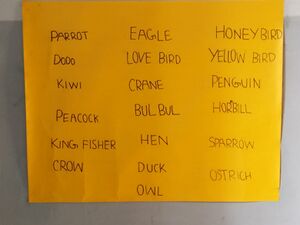 PARROT
DODO
KIWI
PEACOCK
KING FISHER
CROW
EAGLE
LOVE BIRD
CRANE
BULBUL
HEN
DUCK
OWL
HONEYBIRD
YELLOW BIRD
PENGUIN
HORBILL
SPARROW
OSTRICH